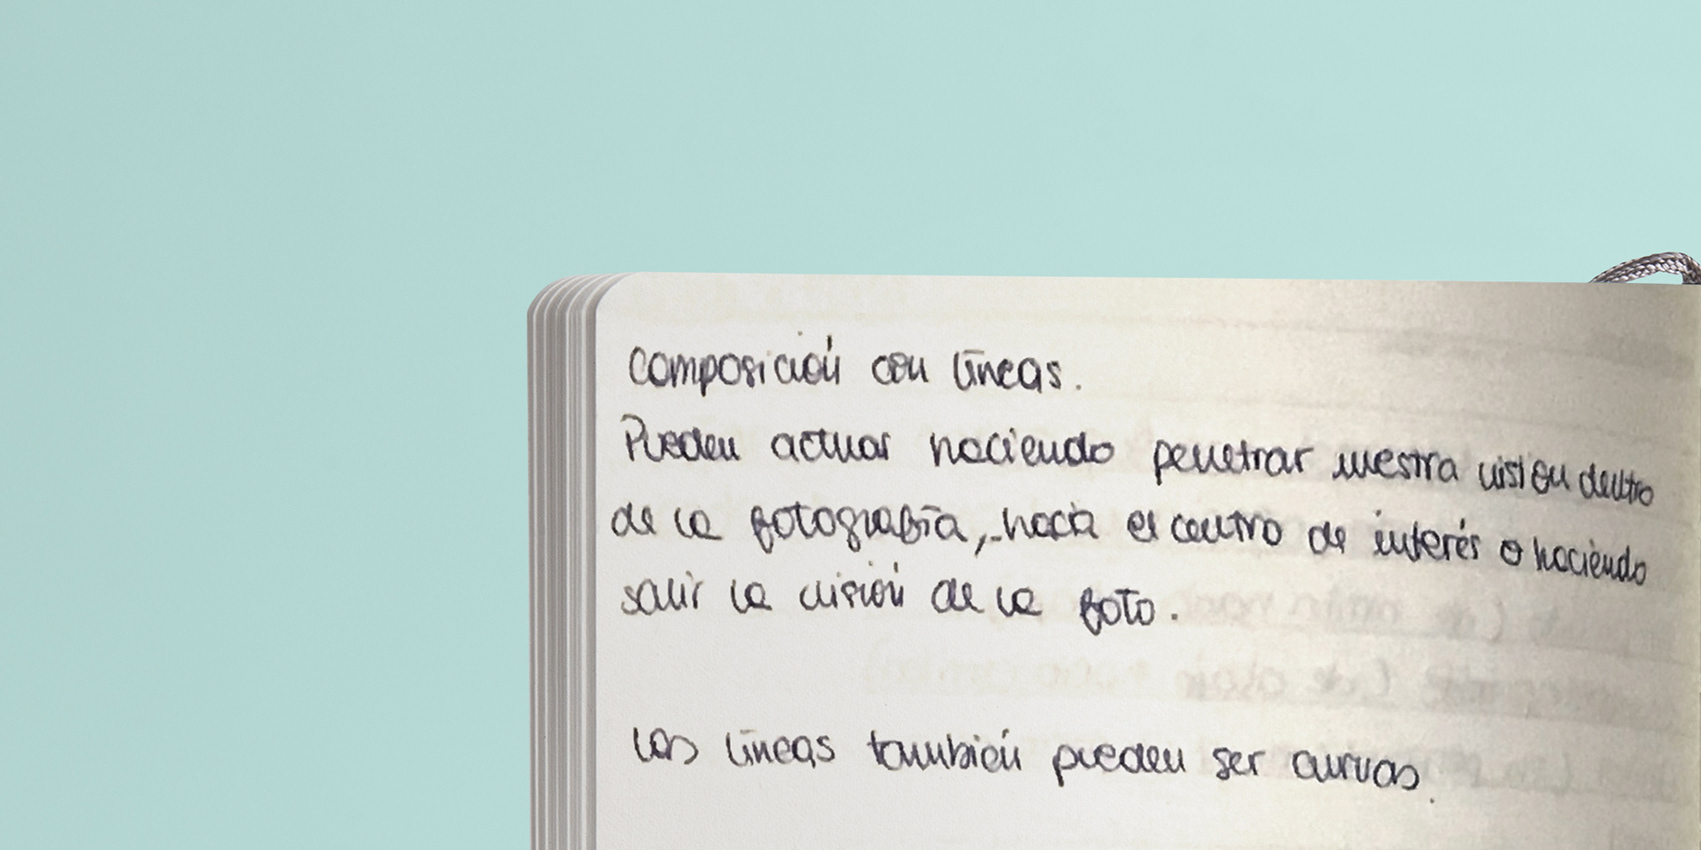 Composición con líneas.
Pueden actuar haciendo penetrar nuestra visión dentro
de la fotografía, hacia el centro de interés o haciendo
salir la visión de la foto.
Las líneas también pueden ser curvas.